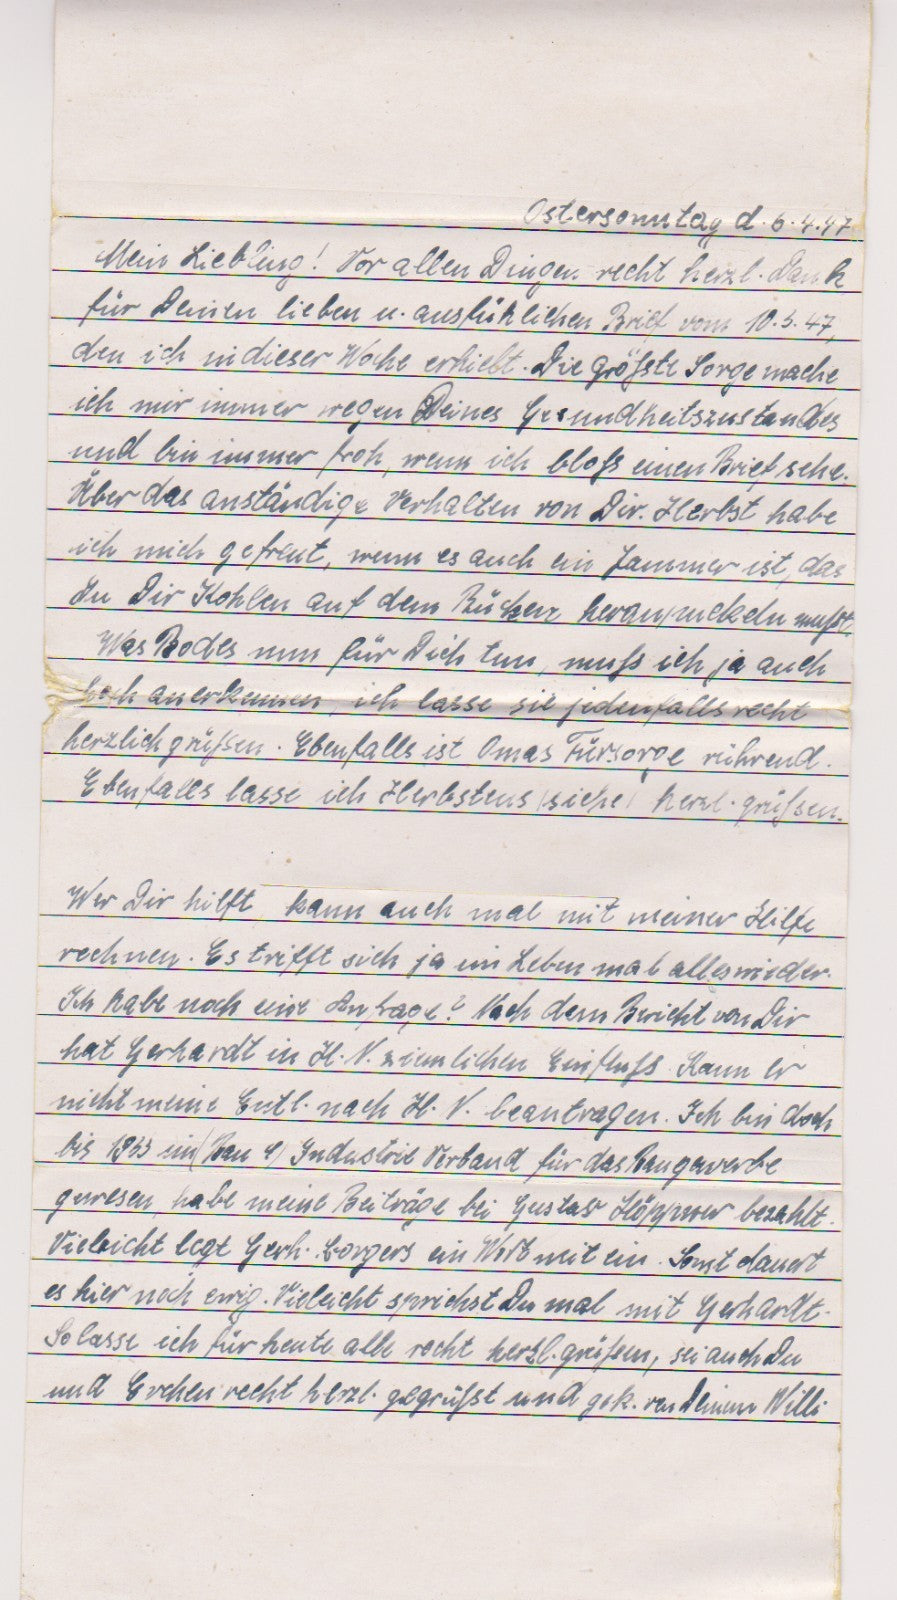 Ostersonntag d. 6.4.47.
Mein Liebling! Vor allen Dingen recht herzl. Dank
für Deinen lieben u. ausführlichen Brief vom 10.3.47,
den ich in dieser Woche erhielt. Die größte Sorge mache
ich mir immer wegen Deines Gesundheitszustandes
und bin immer froh, wenn ich bloß einen Brief sehe.
Über das anständige Verhalten von Dir. Herbst habe
ich mich gefreut, wenn es auch ein Jammer ist, das
Du Dir Kohlen auf dem Rücken heranpuckeln mußt.
Was Bodes nun für Dich tun, muß ich ja auch
hoch anerkennen, ich lasse sie jedenfalls recht
herzlich grüßen. Ebenfalls ist Omas Fürsorge rührend.
Ebenfalls lasse ich Herbstens (siehe) herzl. grüßen.
Wer Dir hilft kann auch mal mit meiner Hilfe
rechnen. Es trifft sich ja im Leben mal alles wieder.
Ich habe noch eine Anfrage? Nach dem Bericht von Dir
hat Gerhardt in H. V. ziemlichen Einfluß. Kann Er
nicht meine Entl. nach H. V. beantragen. Ich bin doch
bis 1933 im (Bau Industrie Verband für das Baugewerbe
gewesen, habe meine Beiträge bei Gustav Höppner bezahlt.
Vieleicht legt Gerh. Borgers ein Wort mit ein. Sonst dauert
es hier noch ewig. Vieleicht sprichst Du mal mit Gerhardt.
So lasse ich für heute alle recht herzl. grüßen, sei auch Du
und Evchen recht herzl. gegrüßt und gek. von Deinem Willi